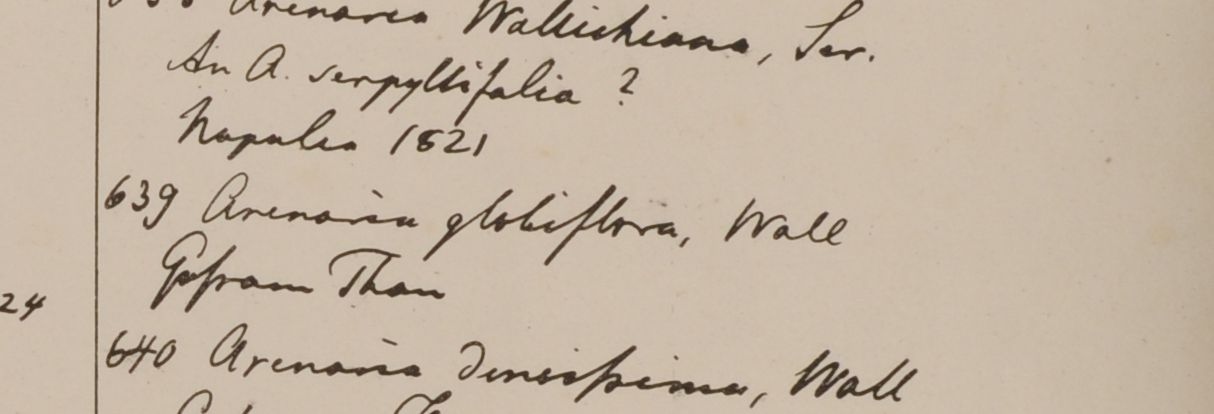 Arenaria Wallichiana, Ser.
An A. serpyllifolia ?
Napalia 1821
639 Arenaria globiflora, Wall
Gosſam Than
24
640 Arenaria densissima, Wall